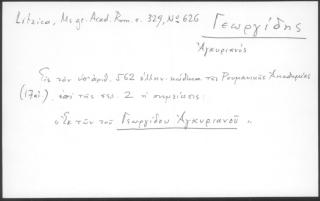 Litzica, Ms gr. Acad. Rom. σ. 329, No 626
Γεωργίδης
Ἀγκυριανός
Εἰς τὸν ὑπ' ἀριθ. 562 ἑλλην. κώδικα τῆς Ρουμανικῆς Ἀκαδημίας
(17 αἰ.), ἐπὶ τῆς σελ. 2 ἡ σημείωσις:
«Ἐκ τῶν τοῦ Γεωργίδου Ἀγκυριανοῦ»